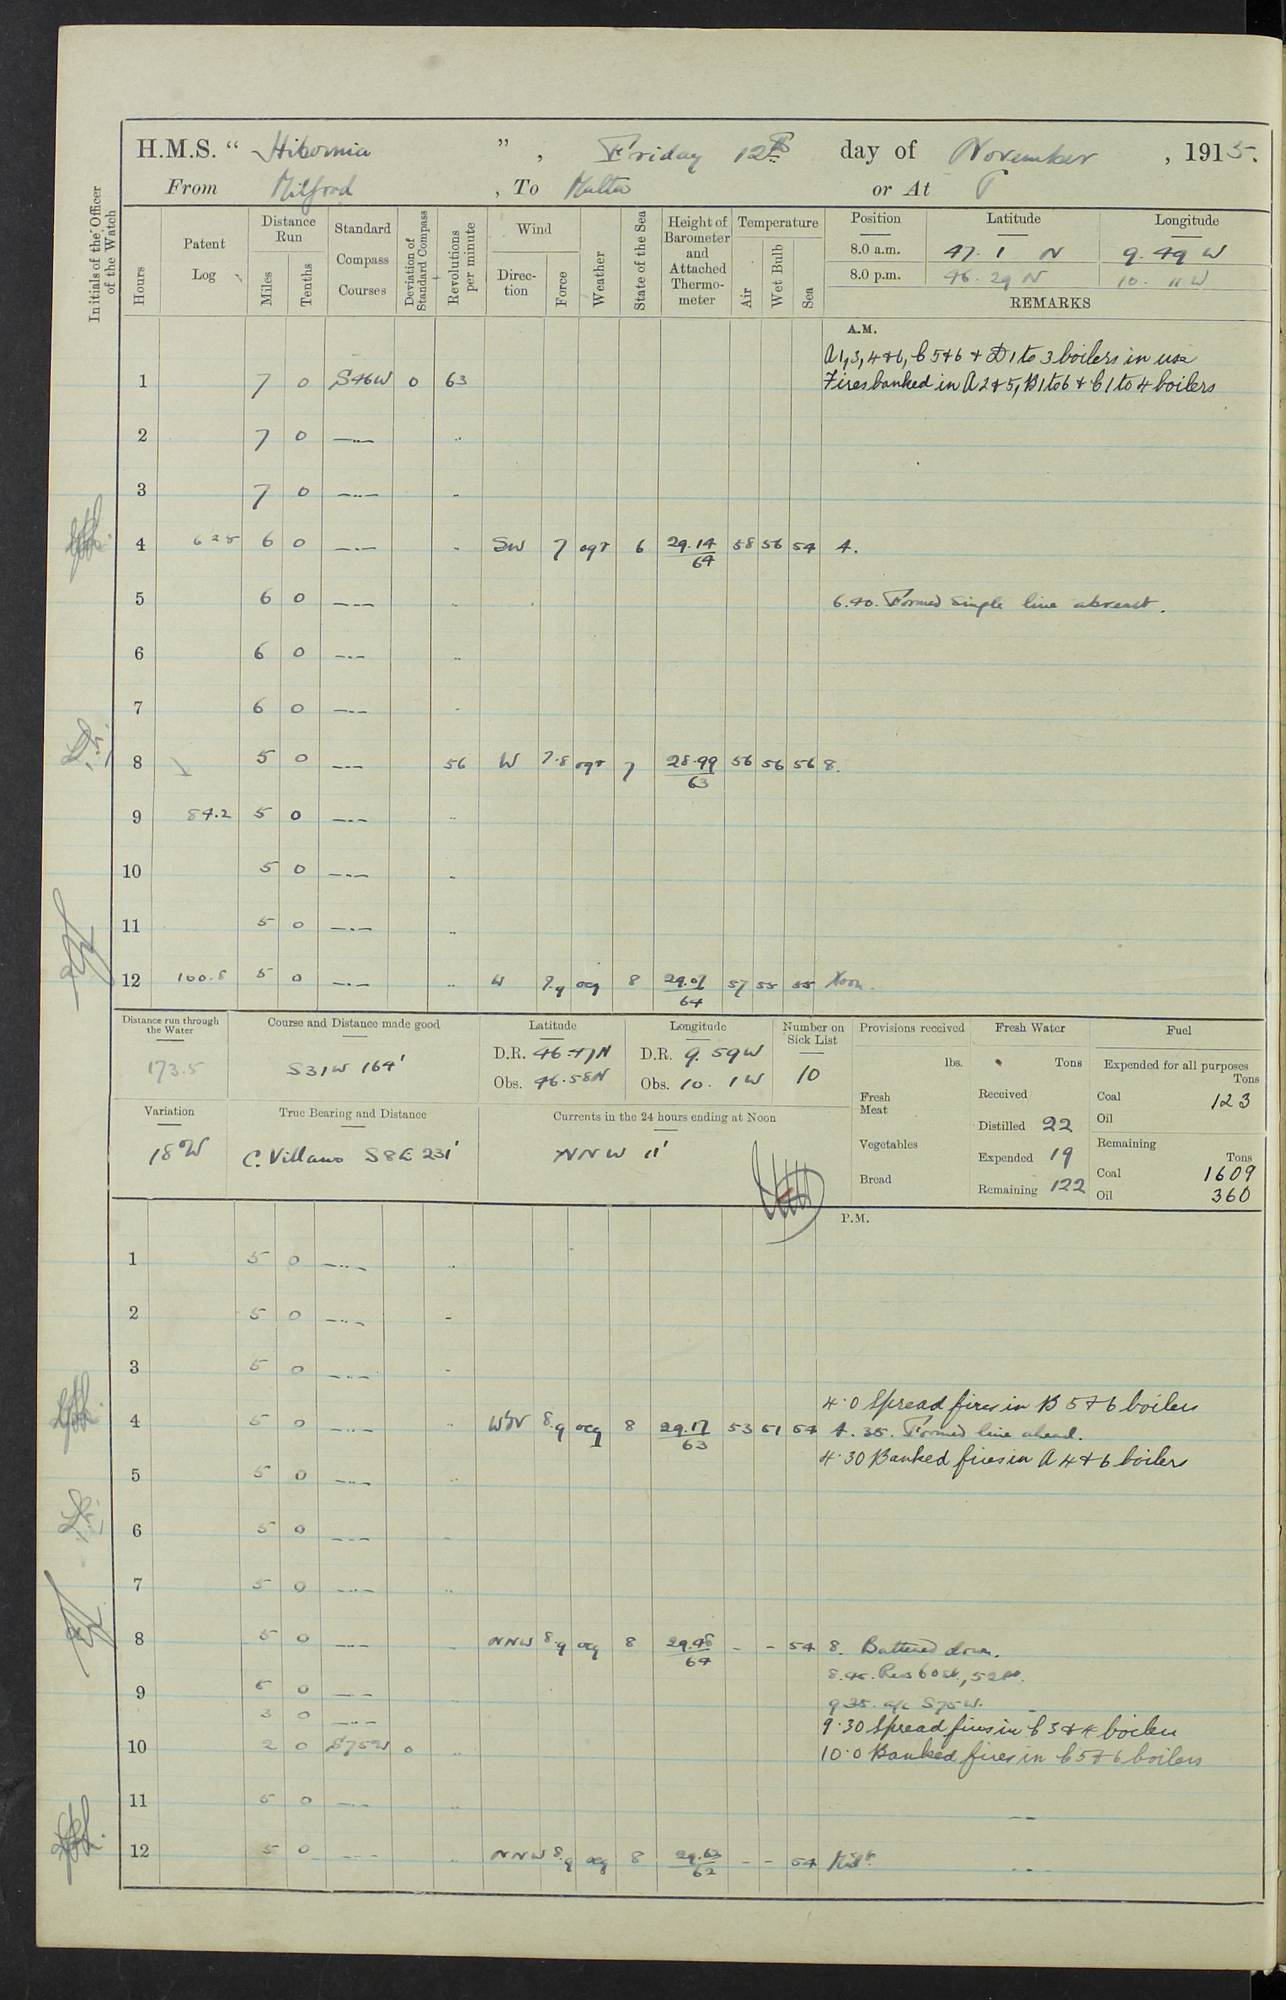 H.M.S. “ Hibernia ” , Friday 12th day of November , 1915.
From Milford , To Malta or At
Initials of the Officer of the Watch
Hours
Patent Log
Distance Run
Miles
Tenths
Standard Compass Courses
Deviation of Standard Compass
Revolutions per minute
Wind
Direc-tion
Force
Weather
State of the Sea
Height of Barometer and Attached Thermo-meter
Temperature
Air
Wet Bulb
Sea
Position Latitude Longitude
8.0 a.m. 47. 1 N 9. 49 W
8.0 p.m. 46. 29 N 10. 11 W
REMARKS
A.M.
A 1, 3, 4 & 6, C 5 & 6 & D 1 to 3 boilers in use
1 7 0 S46W 0 63 Fires banked in A 2 & 5, B 1 to 6 & C 1 to 4 boilers
2 7 0 —..— ..
3 7 0 —..— ..
4 62 5 6 0 —..— .. SW 7 ogr 6 29.14/64 58 56 54 4.
5 6 0 —..— .. 6.40. Formed single line abreast.
6 6 0 —..— ..
7 6 0 —..— ..
8 5 0 —..— 56 W 7.8 ogr 7 28.99/63 56 56 56 8.
9 84.2 5 0 —..— ..
10 5 0 —..— ..
11 5 0 —..— ..
12 100.8 5 0 —..— .. W 7.9 ocg 8 29.07/64 57 55 55 Noon.
Distance run through the Water
173.5
Course and Distance made good
S31W 164'
Latitude
D.R. 46.47N
Obs. 46.58N
Longitude
D.R. 9. 59W
Obs. 10. 1W
Number on Sick List
10
Provisions received
lbs.
Fresh Meat
Vegetables
Bread
Fresh Water
Tons
Received
Distilled 22
Expended 19
Remaining 122
Fuel
Expended for all purposes
Tons
Coal 123
Oil
Remaining
Tons
Coal 1609
Oil 360
Variation
18°W
True Bearing and Distance
C. Villano S8E 231'
Currents in the 24 hours ending at Noon
NNW 11'
P.M.
1 5 0 —..— ..
2 5 0 —..— ..
3 5 0 —..— ..
4.0 Spread fires in B 5 & 6 boilers
4 5 0 —..— .. 8.9 ocg 8 29.17/63 53 51 54 4. 35. Formed line ahead.
4.30 Banked fires in A 4 & 6 boilers
5 5 0 —..— ..
6 5 0 —..— ..
7 5 0 —..— ..
8 5 0 —..— .. NNW 8.9 ocg 8 29.48/64 - - 54 8. Battened down.
8.45.
9 5 0 —..—
3 0 —..— 9 35. a/c S75W.
9.30 Spread fires in C 3 & 4 boilers
10 2 0 S75W 0 .. 10.0 Banked fires in C 5 & 6 boilers
11 5 0 —..— ..
12 5 0 —..— .. NNW 8.9 ocg 8 29.63/62 - - 54 Midt.